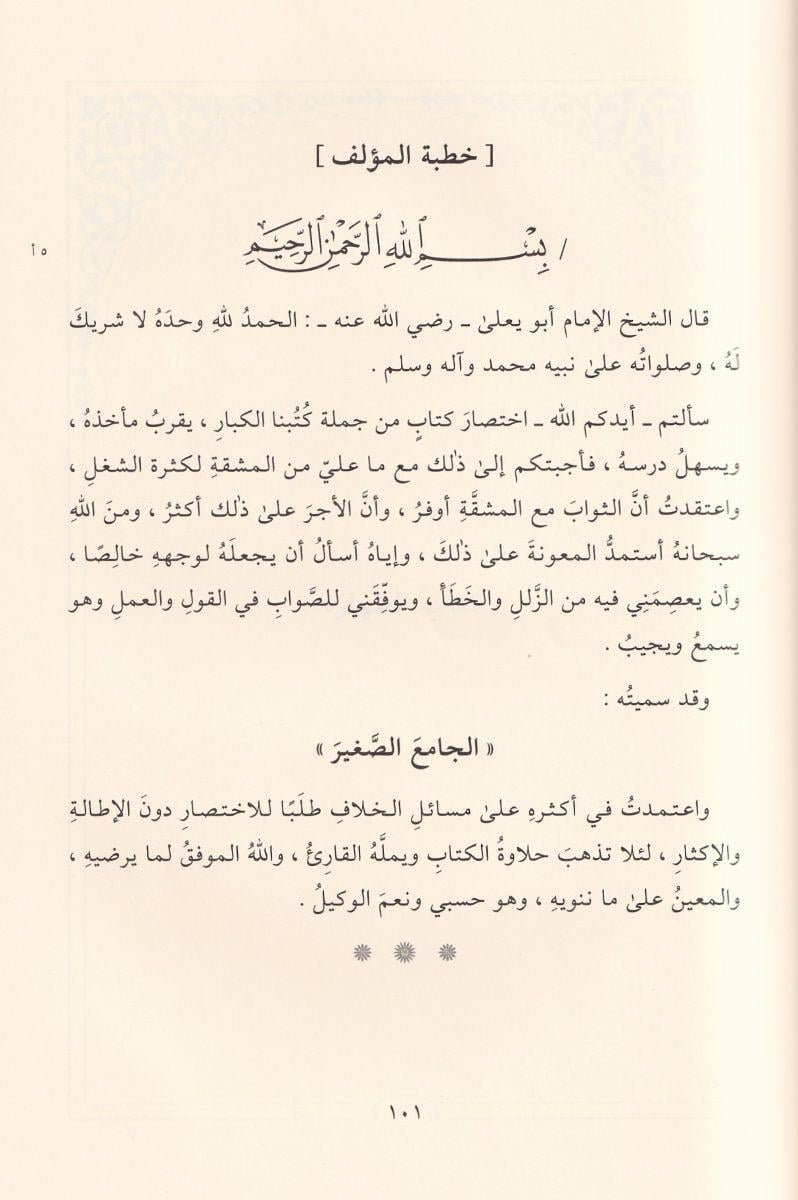 [ خطبة المؤلف ]
/ بِسْمِ ٱللهِ ٱلرَّحْمٰنِ ٱلرَّحِيمِ
٥ أ
قال الشيخ الإمام أبو يعلىٰ ـ رضي الله عنه ـ : الحمدُ للهِ وحدَهُ لا شريكَ
لَهُ ، وصلواتُه علىٰ نبيه محمد وآله وسلم .
سألتم ـ أيدكم الله ـ اختصارَ كتابٍ من جملة كُتُبنا الكبارِ ، يقربُ مأخذهُ ،
ويسهلُ درسهُ ، فأجبتكم إلىٰ ذٰلك مع ما عليّ من المشقةِ لكثرة الشغلِ ،
واعتقدتُ أنَّ الثوابَ مع المشقَّةِ أوفرُ ، وأنَّ الأجرَ علىٰ ذٰلك أكثرُ ، ومنَ اللهِ
سبحانهُ أستمدُّ المعونةَ علىٰ ذٰلكَ ، وإياهُ أسألُ أن يجعلَهُ لوجههِ خالِصًا ،
وأن يعصِمَنِي فيه من الزَّللِ والخَطَأ ، ويوفِّقَني للصَّوابِ في القولِ والعملِ وهو
يسمعُ ويجيبُ .
وقد سميتُه :
« الجامعَ الصَّغيرَ »
واعتمدتُ في أكثرهِ علىٰ مسائلِ الخلافِ طلَبًا للاختصارِ دونَ الإطالةِ
والإكثارِ ، لئلا تذهبَ حلاوةُ الكتابِ ويملَّهُ القارِئُ ، واللهُ الموفقُ لما يرضيهِ ،
والمعينُ علىٰ ما ننويهِ ، وهو حسبي ونعمَ الوكيلُ .
١٠١